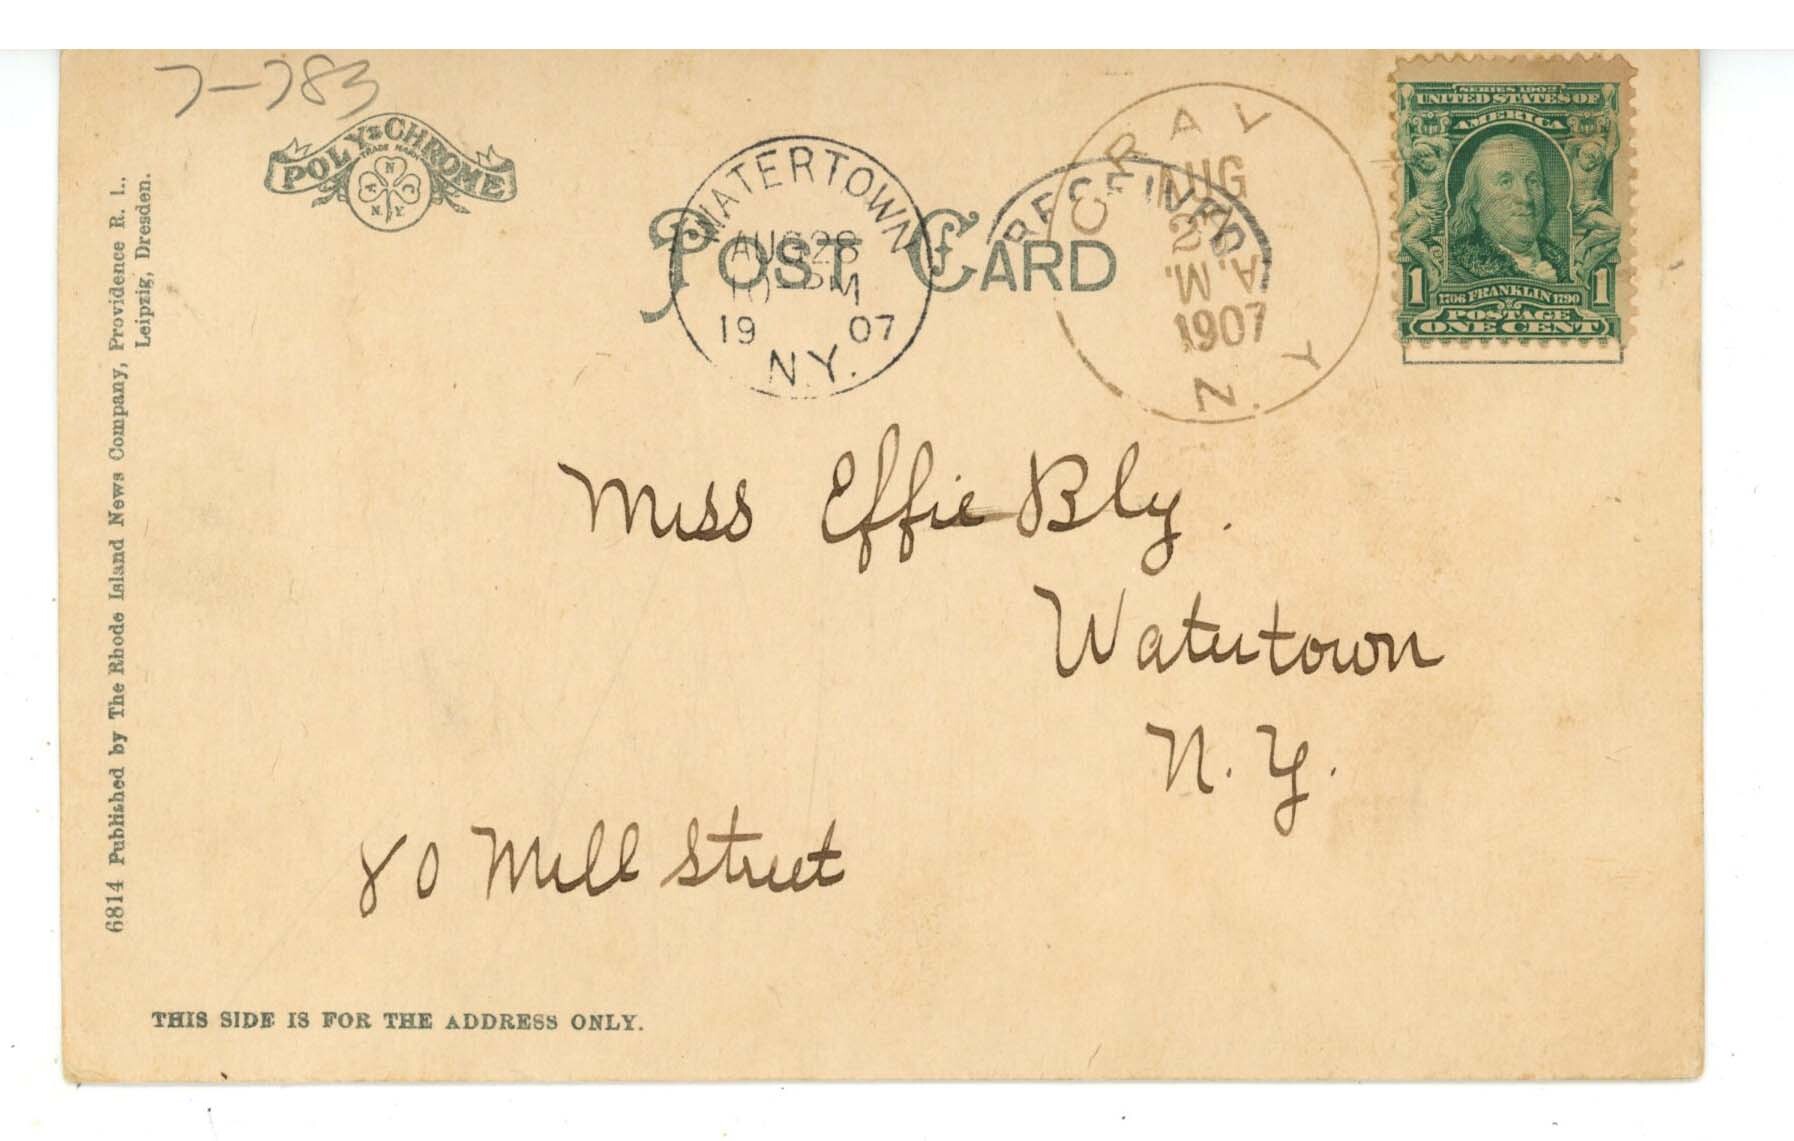 7-783
POLY-CHROME
TRADE MARK
A N C
N.Y.
POST CARD
WATERTOWN
AUG 28
10 - PM
19 07
N.Y.
RECEIVED
AUG
2
A.M.
1907
N. Y
SERIES 1902
UNITED STATES OF
AMERICA
1 1706 FRANKLIN 1790 1
POSTAGE
ONE CENT
6814 Published by The Rhode Island News Company, Providence R. I.,
Leipzig, Dresden.
Miss Effie Bly.
Watertown
N. Y.
80 Mill Street
THIS SIDE IS FOR THE ADDRESS ONLY.